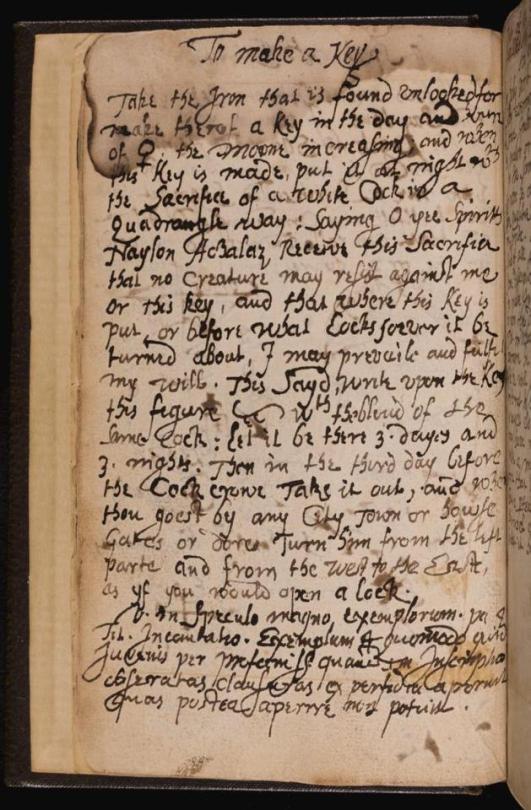 To make a Key
Take the Iron that is found unlooked for
make therof a key in the day and
of ♀ the moone increasing and when
this Key is made, put it at night wth
the Sacrifice of a white Cock in a
Quadrangle way : Saying O yee Spirits
Naylon Achalaz Receive this Sacrifice
that no Creature may resist against me
or this key, and that where this Key is
put, or before what Locks soever it be
turned about, I may prevaile and fulfil
my will. This Sayd, write upon the Key
this figure wth the bloud of the
same Cock : let it be there 3. dayes and
3. nights. Then in the third day before
the Cock crowe Take it out, and when
thou goest by any City Town or house
Gates or dores Turn him from the left
parte and from the west to the East,
as yf you would open a lock.
V. In Speculo magno exemplorum.
Tit. Incantatio. Exemplum quomodo quid
Juvenis per
obseratas clausuras ex perfidia aperuit
quas postea aperire non potuit.